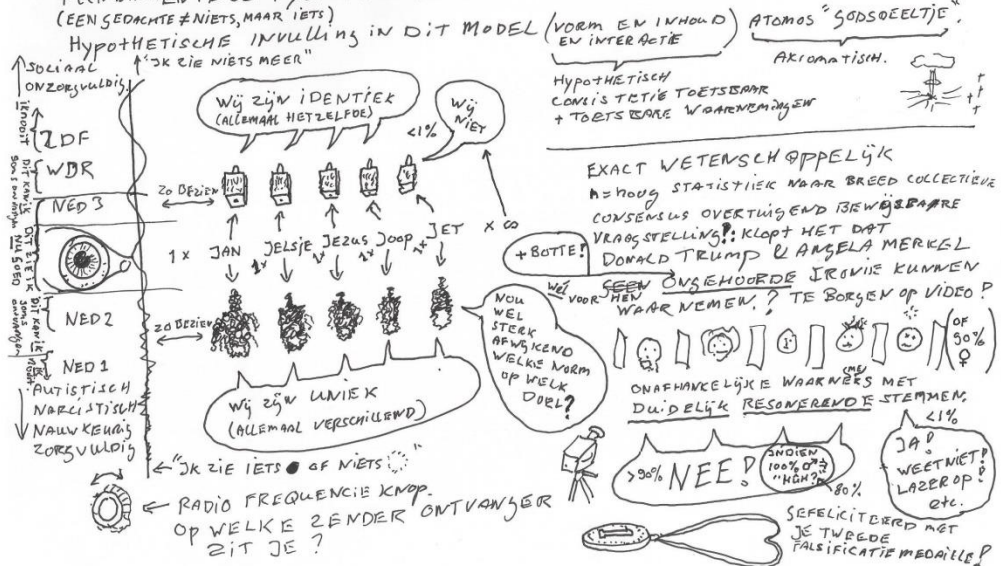 (EEN GEDACHTE ≠ NIETS, MAAR IETS)
HYPOTHETISCHE INVULLING IN DIT MODEL (VORM EN INHOUD
EN INTERACTIE)
ATOMOS "GODSDEELTJE".
HYPOTHETISCH
CONSISTETIE TOETSBAAR
+ TOETSBARE WAARNEMINGEN
AXIOMATISCH.
SOCIAAL
ONZORGVULDIG
"IK ZIE NIETS MEER"
IK NOOIT
ZDF
WDR
NED 3
NED 2
NED 1
DIT KAN IK
SOMS ONTVANGEN
DIT ZIE IK
NU GOED
DIT KAN IK
SOMS
ONTVANGEN
AUTISTISCH
NARCISTISCH
NAUWKEURIG
ZORGVULDIG
WIJ ZIJN IDENTIEK
(ALLEMAAL HETZELFDE)
<1%
WIJ
NIET
ZO BEZIEN
1x JAN
1x JELSJE
1x JEZUS
1x JOOP
1x JET
x ∞
ZO BEZIEN
NOU
WEL
STERK
AFWIJKEND
WELKE NORM
OP WELK
DOEL?
WIJ ZIJN UNIEK
(ALLEMAAL VERSCHILLEND)
"IK ZIE IETS ● OF NIETS"
RADIO FREQUENCIE KNOP.
OP WELKE ZENDER ONTVANGER
ZIT JE?
EXACT WETENSCHAPPELIJK
n = HOOG STATISTIEK NAAR BREED COLLECTIEVE
CONSENSUS OVERTUIGEND BEWIJSBAARE
VRAAGSTELLING!?: KLOPT HET DAT
DONALD TRUMP & ANGELA MERKEL
+ BOTTE!
GEEN ONGEHOORDE IRONIE KUNNEN
WEL VOOR HEN
WAARNEMEN.? TE BORGEN OP VIDEO!
(OF
50%
♀)
ONAFHANKELIJKE WAARNE(ME)RS MET
DUIDELIJK RESONERENDE STEMMEN.
>90% NEE!
INDIEN
100% ♂
"HGH?"
80%
<1%
JA!
WEET NIET!
LAZER OP!
etc.
GEFELICITEERD MET
JE TWEEDE
FALSIFICATIE MEDAILLE!